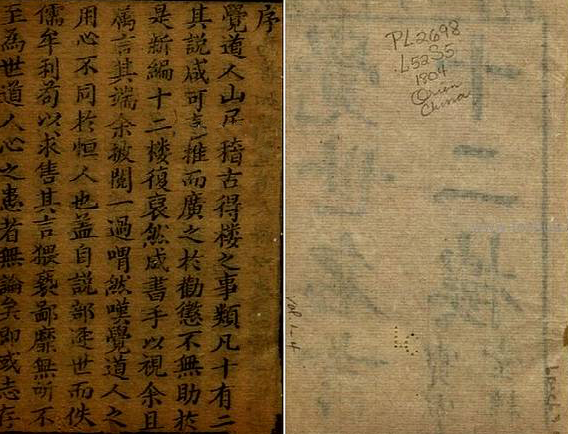 序
覺道人山居稽古得楼之事類凡十有二
其說咸可喜推而廣之於勸懲不無助於
是新編十二楼復裒然成書手以視余且
屬言其端余披閱一過喟然嘆覺道人之
用心不同於恒人也蓋自說部逢世而佚
儒牟利苟以求售其言猥褻鄙靡無所不
至為世道人心之患者無論矣即或志存
PL2698
.L52S5
1804
Orien
China
vol. 1-4